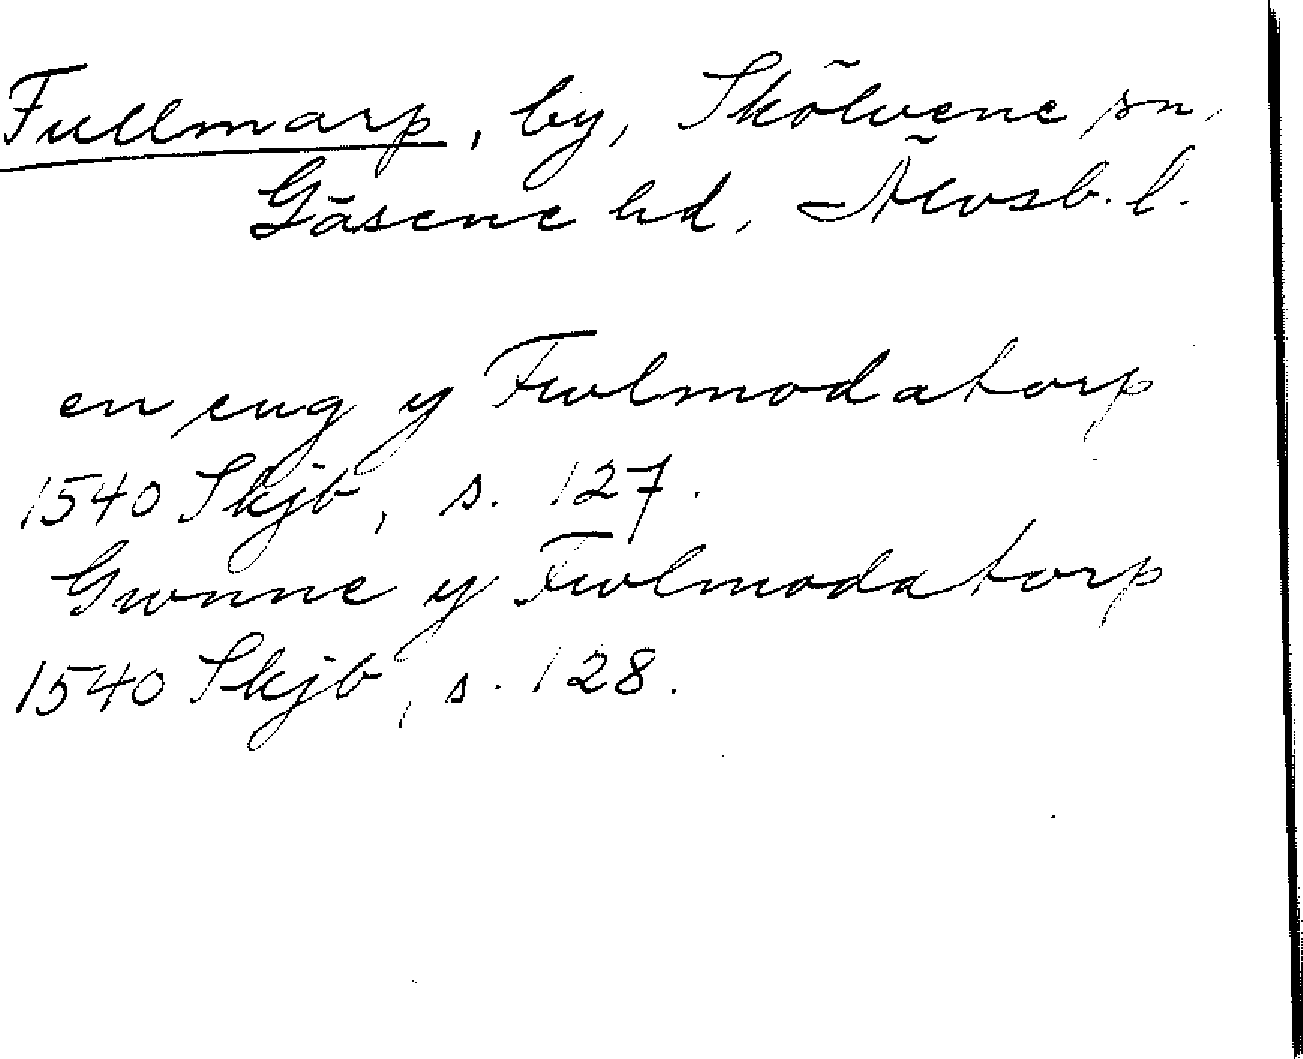 Fullmarp, by, Skölvene sn,
Gäsene hd, Älvsb. l.
en eng y Fwlmodatorp
1540 Skjb, s. 127.
Gwnne y Fwlmodatorp
1540 Skjb, s. 128.